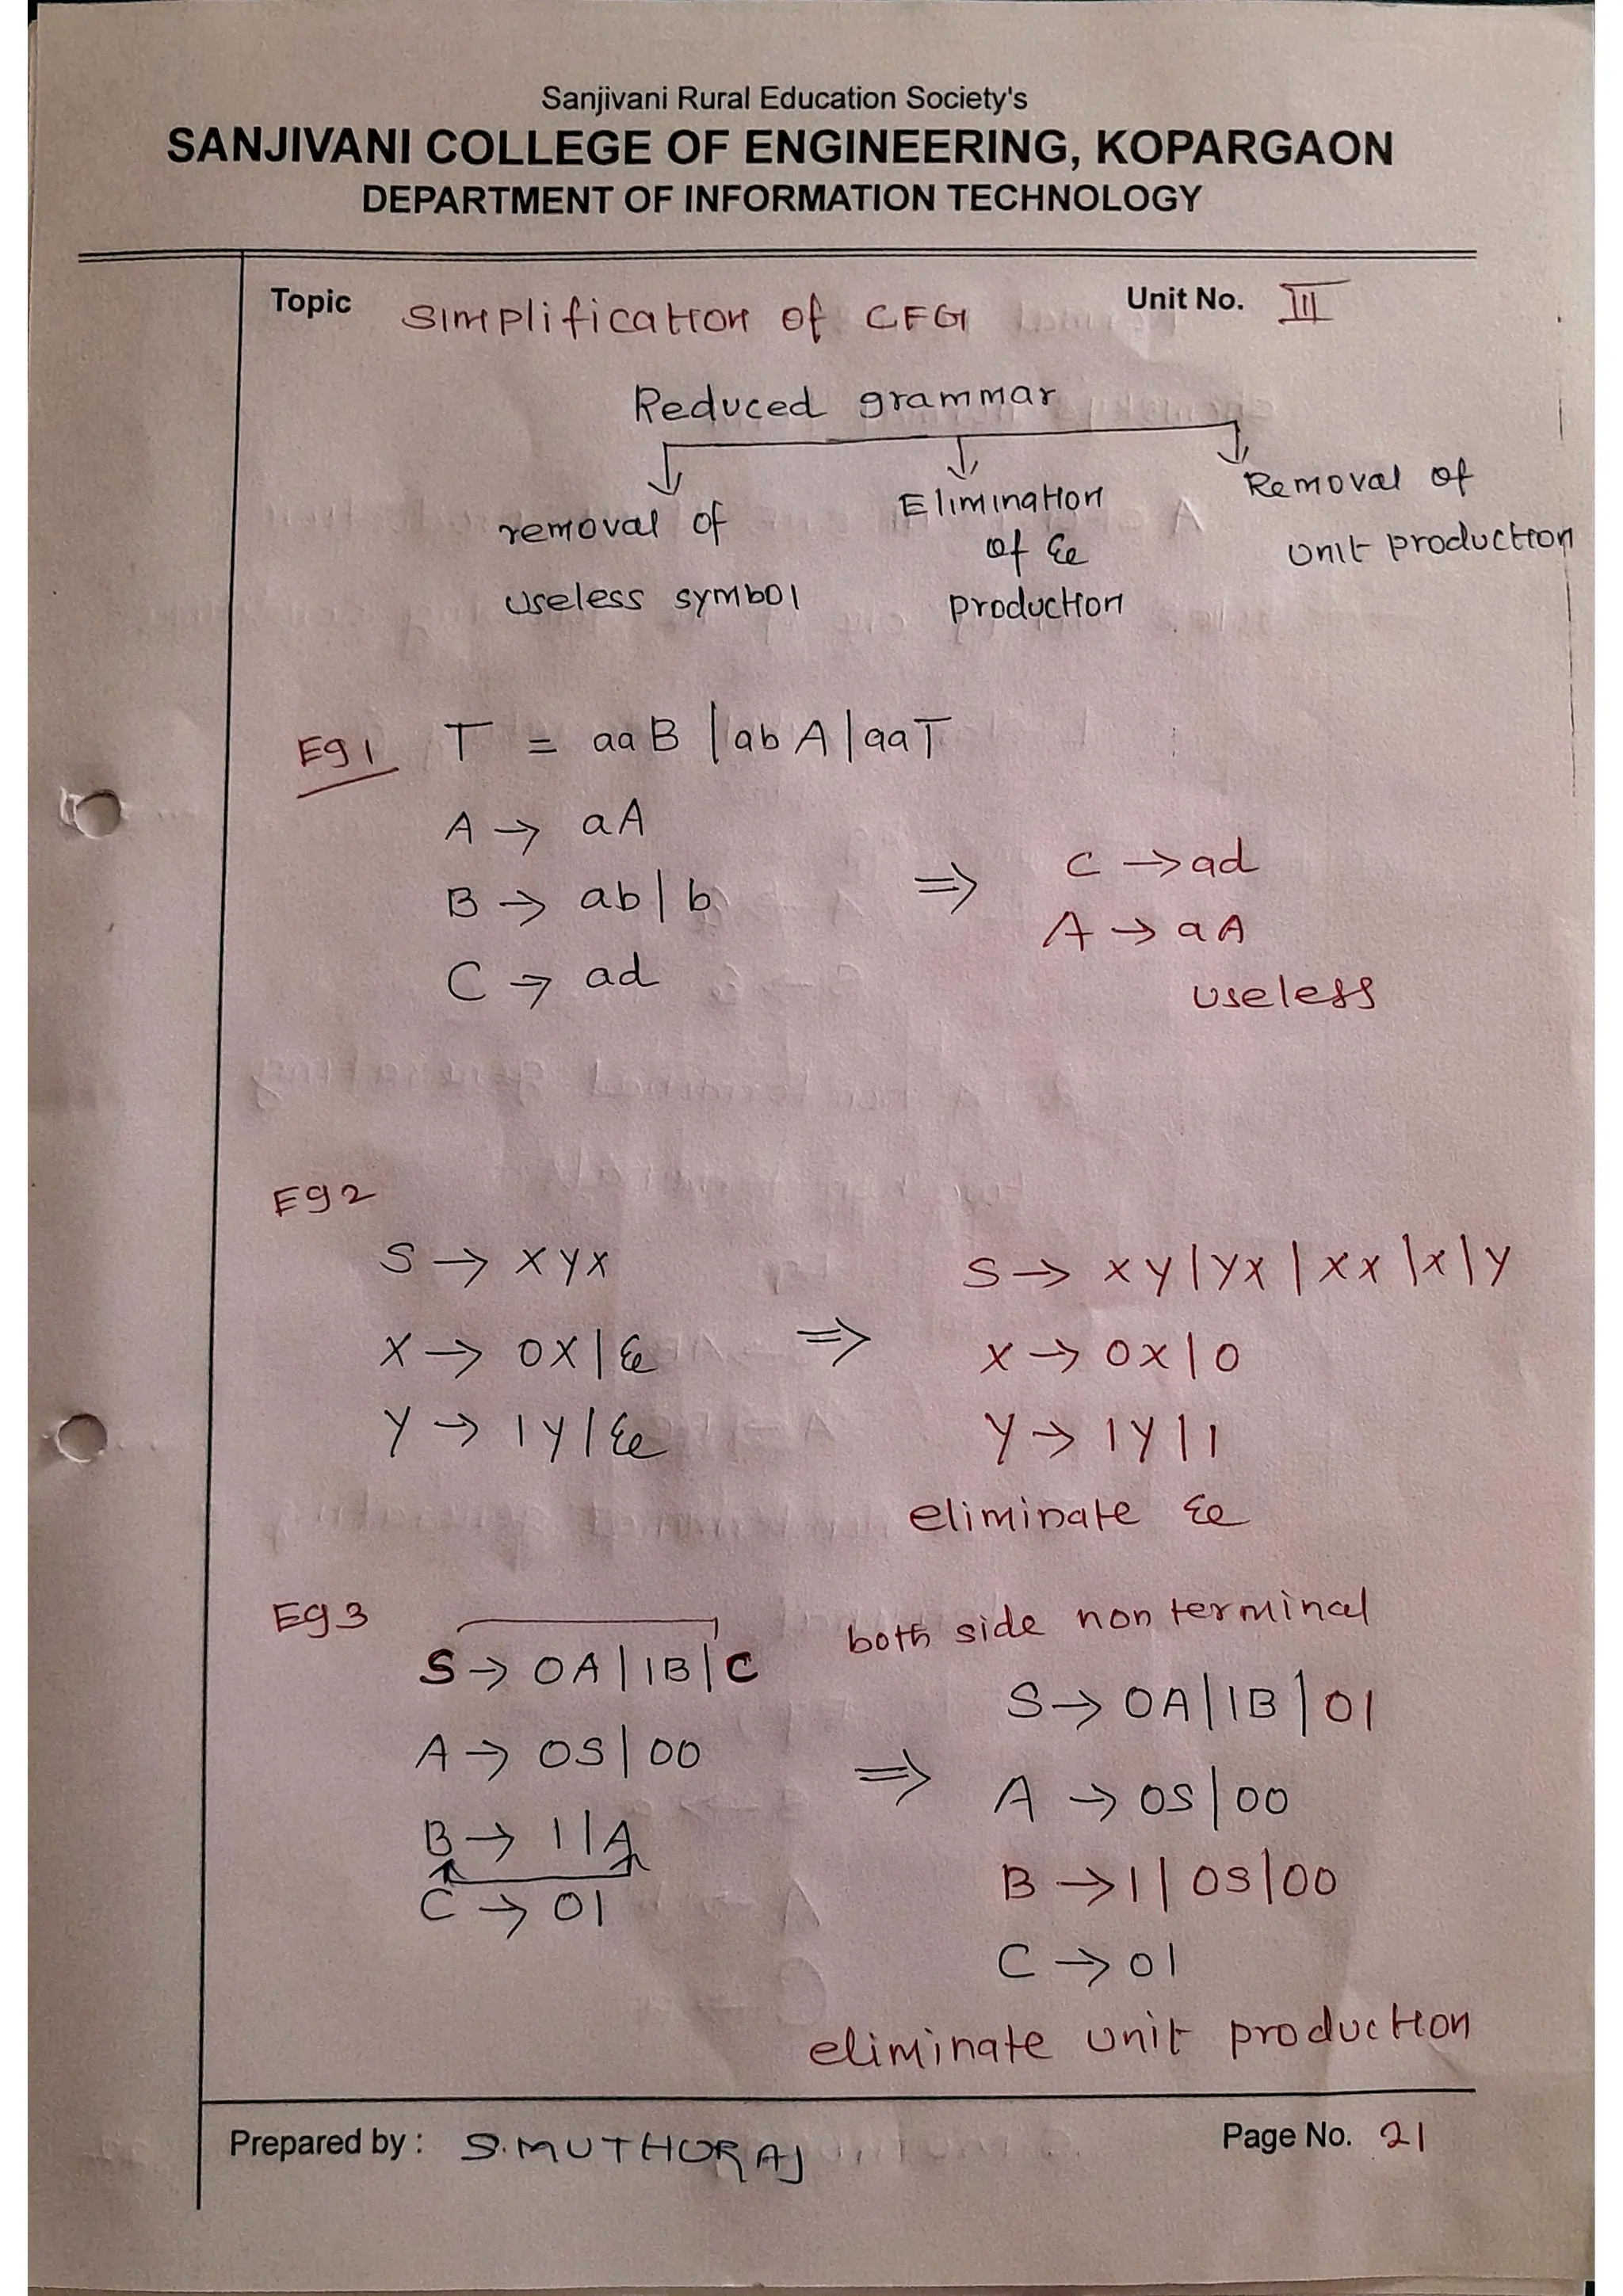 Sanjivani Rural Education Society's
SANJIVANI COLLEGE OF ENGINEERING, KOPARGAON
DEPARTMENT OF INFORMATION TECHNOLOGY
Topic Simplification of CFG Unit No. III
Reduced grammar
removal of
useless symbol
Elimination
of ε
production
Removal of
unit production
Eg 1 T = aaB | abA | aaT
A → aA
B → ab | b
C → ad
⇒ C → ad
A → aA
useless
Eg 2
S → XYX
X → 0X | ε
Y → 1Y | ε
⇒ S → XY | YX | XX | X | Y
X → 0X | 0
Y → 1Y | 1
eliminate ε
Eg 3
S → 0A | 1B | C
A → 0S | 00
B → 1 | A
C → 01
both side non terminal
⇒ S → 0A | 1B | 01
A → 0S | 00
B → 1 | 0S | 00
C → 01
eliminate unit production
Prepared by : S.MUTHURAJ Page No. 21